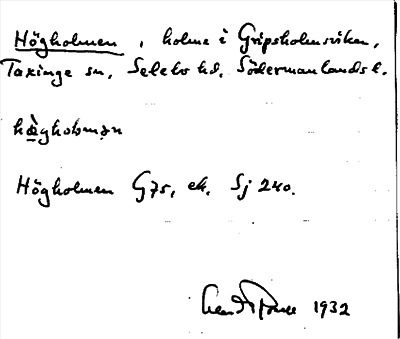 Högholmen, holme i Gripsholmsviken,
Taxinge sn, Selebo hd, Södermanlands l.
Högholmen G75, ek. Sj 240.
1932